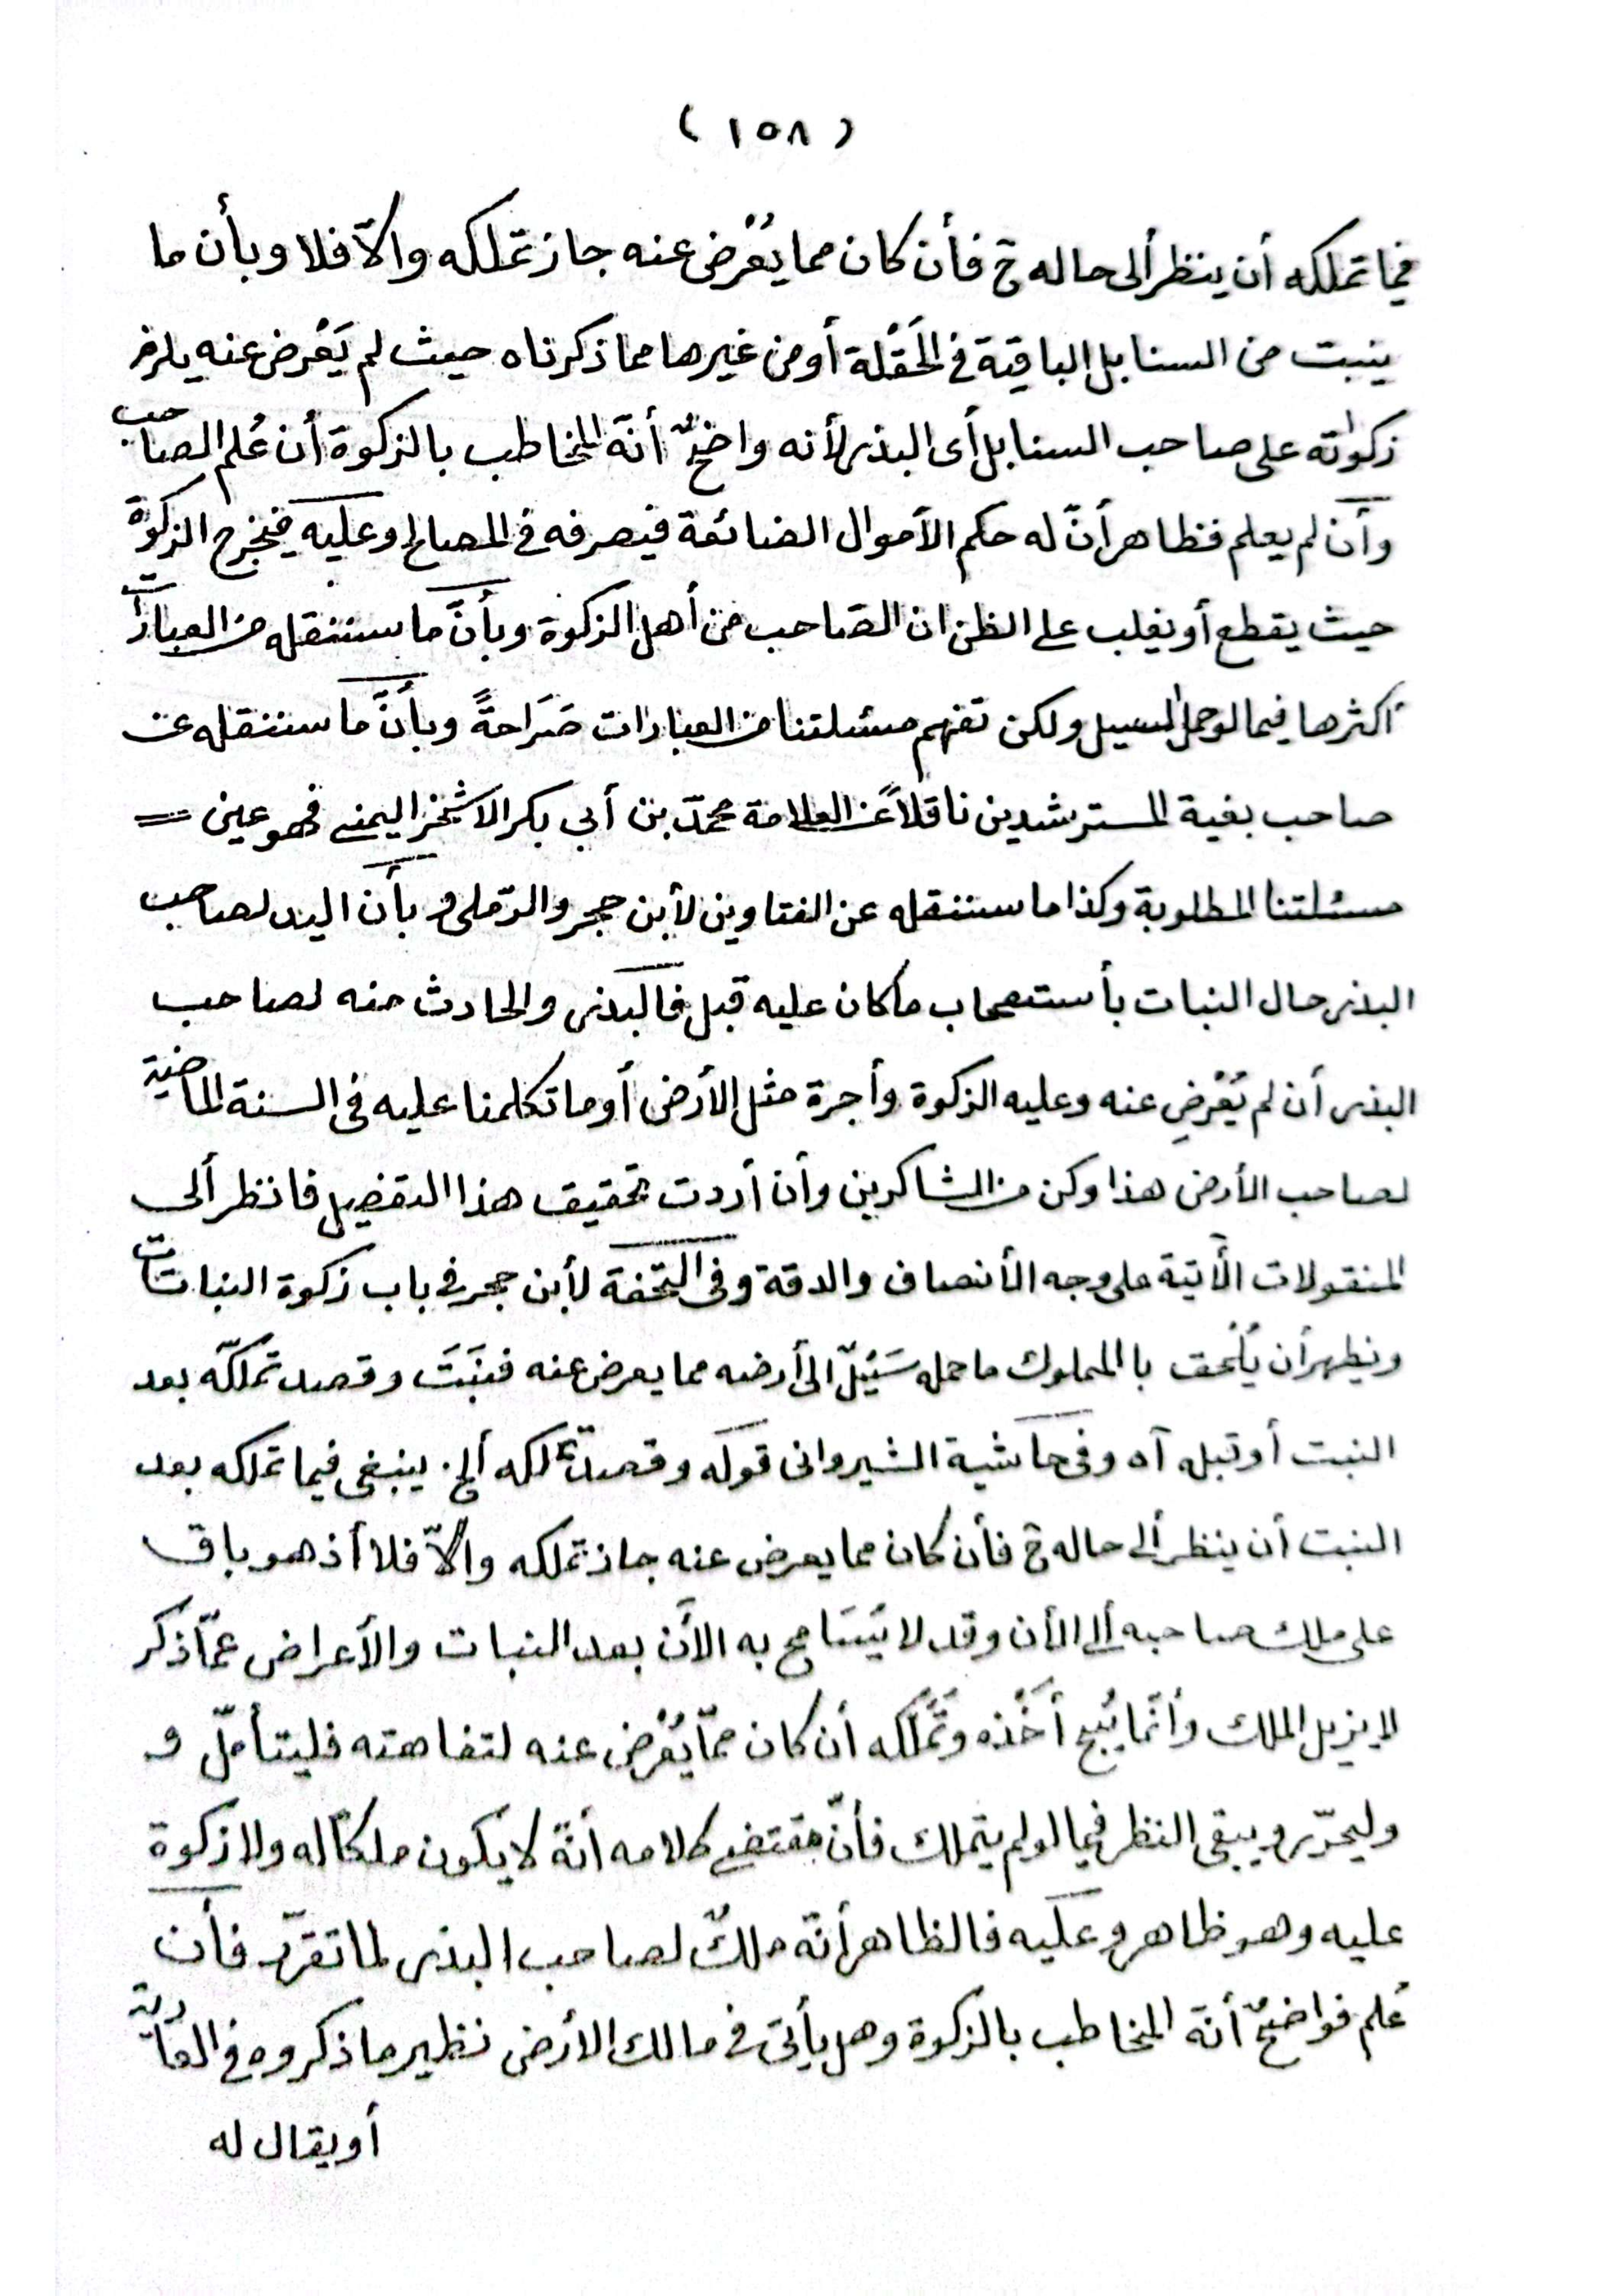 ( ١٥٨ )
فيما تملكه أن ينظر ألى حاله ح فأن كان مما يُعْرض عنه جاز تملكه والاّ فلا وبأن ما
ينبت من السنابل الباقية في الحَقْلة أو من غيرها مما ذكرناه حيث لم يَعْرض عنه يلزم
زكوٰته على صاحب السنابل أى البذر لأنه واضحٌ أنّه المخاطب بالزكوة أن عُلم الصاحب
وأن لم يعلم فظاهر أنّ له حكم الأموال الضائعة فيصرفه في المصالح وعليه فيخرج الزكوة
حيث يقطع أو يغلب على الظن ان الصّاحب من أهل الزكوة وبأنَّ ما سننقله من العبارات
أكثرها فيما لو حمل السيل ولكن تفهم مسئلتنا من العبارات صَرَاحةً وبأنَّ ما سننقله عن
صاحب بغية المسترشدين ناقلاً عن العلامة محمّد بن أبي بكر الاشخر اليمنى فهو عين =
مسئلتنا المطلوبة وكذا ما سننقله عن الفتاوين لأبن حجر والرّملى و بأن اليد لصاحب
البذر حال النبات بأستصحاب ما كان عليه قبل فالبذر والحادث منه لصاحب
البذر أن لم يُعْرضِ عنه وعليه الزكوة وأجرة مثل الأرض أو ما تكلمنا عليه فى السنة الماضية
لصاحب الأرض هذا وكن من الشاكرين وأن أردت تحقيق هذا التفصيل فانظر ألى
المنقولات الأٓتية على وجه الأنصاف والدقة وفى التحفة لأبن حجر في باب زكوة النباتات
ويظهر أن يُلْحق باالمملوك ما حمله سَيْلٌ الى أرضه مما يعرض عنه فنبَتَ وقصد تملكّه بعد
النبت أو قبله آه وفى حاشية الشيروانى قوله وقصد تملكه ألخ. ينبغى فيما تملكه بعد
النبت أن ينظر ألى حاله ح فأن كان مما يعرض عنه جاز تملكه والاّ فلا أذ هو باق
على ملك صاحبه ألى الأن وقد لا يَتَسَامح به الاٰن بعد النبات والأعراض عمّا ذكر
لا يزيل الملك وأنّما يُبيح أَخْذه وتَمَلّكه أن كان ممّا يُعْرض عنه لتفاهته فليتأملّ و
وليحرّر ويبقى النظر فيما لو لم يتملك فأنّ مقتضى كلامه أنّه لا يكون ملكاً له ولا زكوة
عليه وهو ظاهر وعليه فالظاهر أنّه ملكٌ لصاحب البذر لما تقرّر فأن
عُلم فواضحٌ أنّه المخاطب بالزكوة وهل يأتى فى مالك الأرض نظير ما ذكروه في العارية
أو يقال له